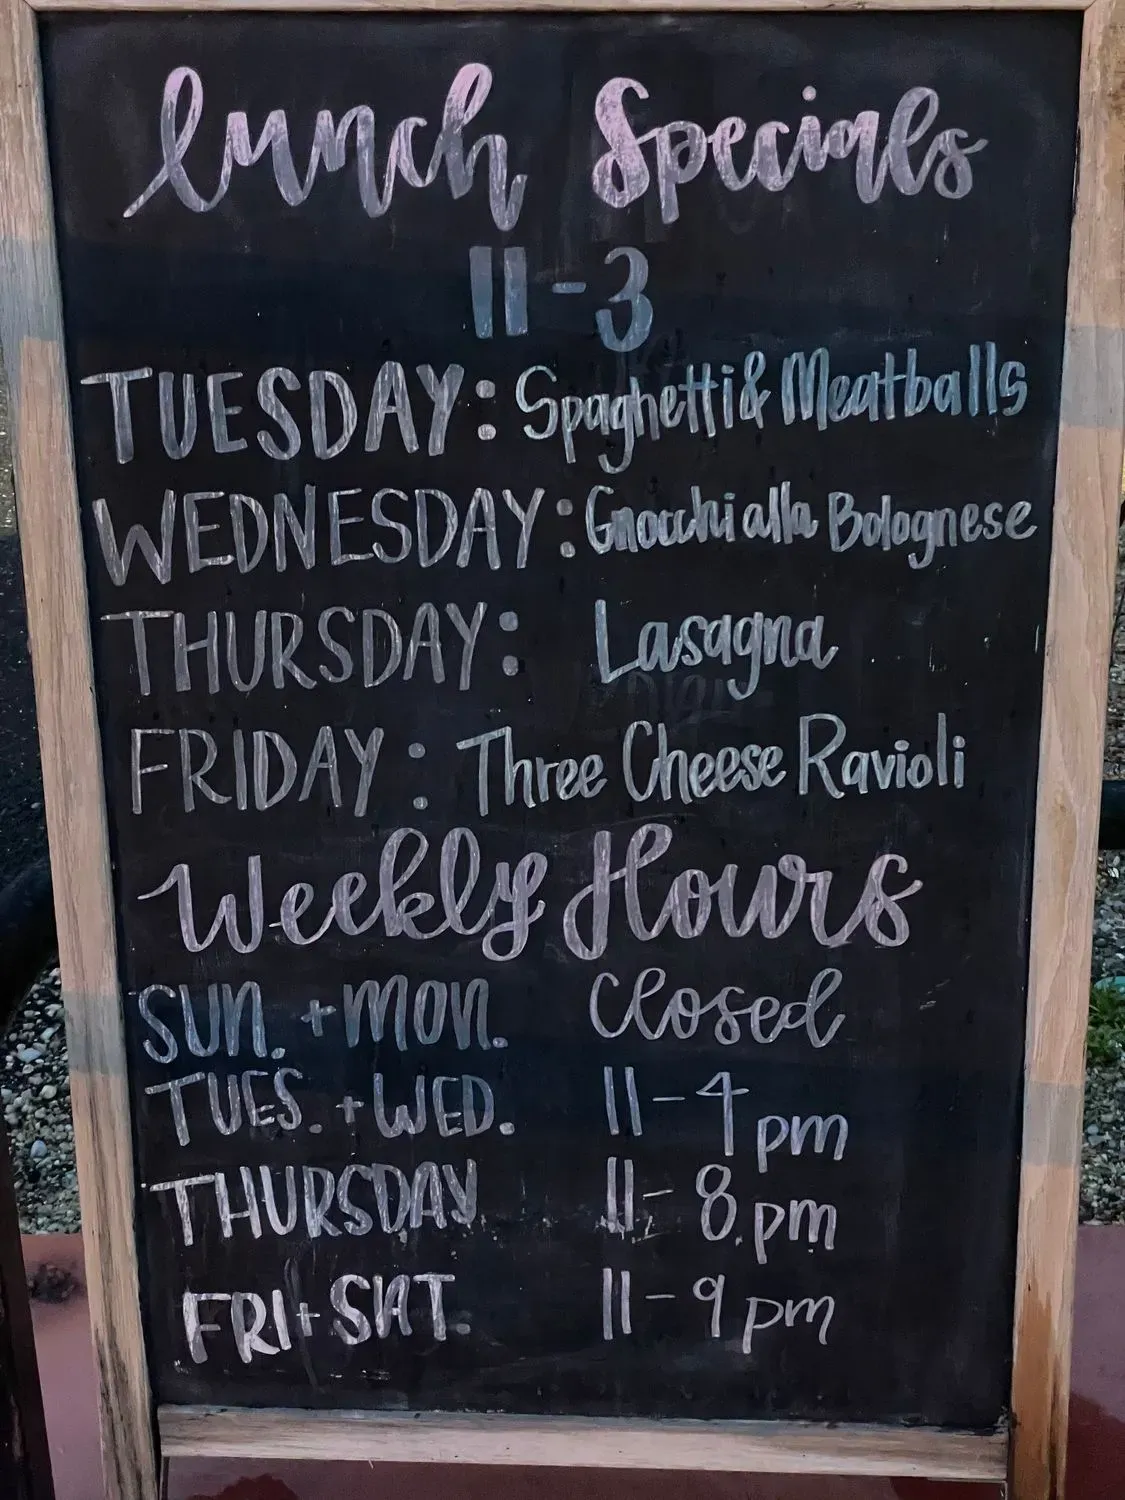 lunch Specials
11-3
TUESDAY: Spaghetti & Meatballs
WEDNESDAY: Gnocchi alla Bolognese
THURSDAY: Lasagna
FRIDAY: Three Cheese Ravioli
Weekly Hours
SUN. + MON. Closed
TUES. + WED. 11-4 pm
THURSDAY 11-8 pm
FRI + SAT. 11-9 pm